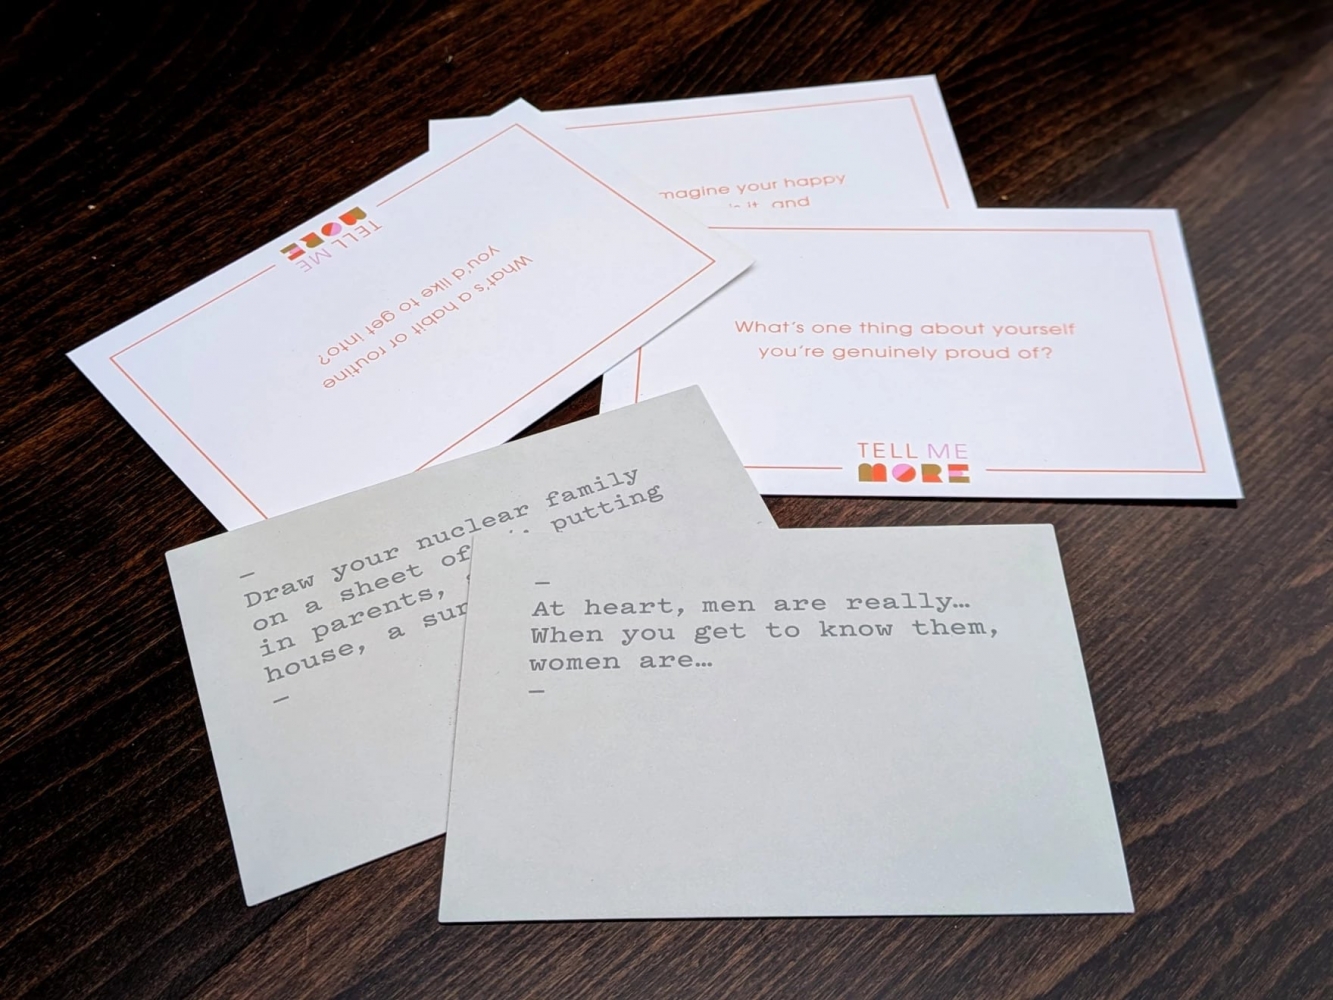 magine your happy
it, and
What's a habit or routine
you'd like to get into?
TELL ME
MORE
What's one thing about yourself
you're genuinely proud of?
TELL ME
MORE
—
Draw your nuclear family
on a sheet of putting
in parents,
house, a
—
—
At heart, men are really…
When you get to know them,
women are…
—